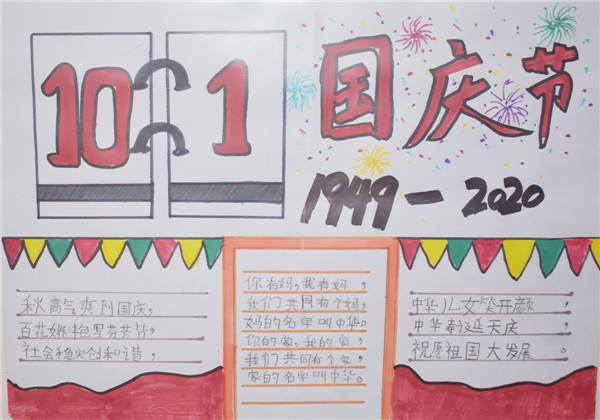 10 1
国庆节
1949-2020
秋高气爽到国庆，
百花娇艳
社会稳定创和谐，
你有妈，我有妈，
我们共同有个妈，
妈的名字叫中华。
你的家，我的家，
我们共同有个家，
家的名字叫中华。
中华儿女笑开颜，
中华
祝愿祖国大发展。